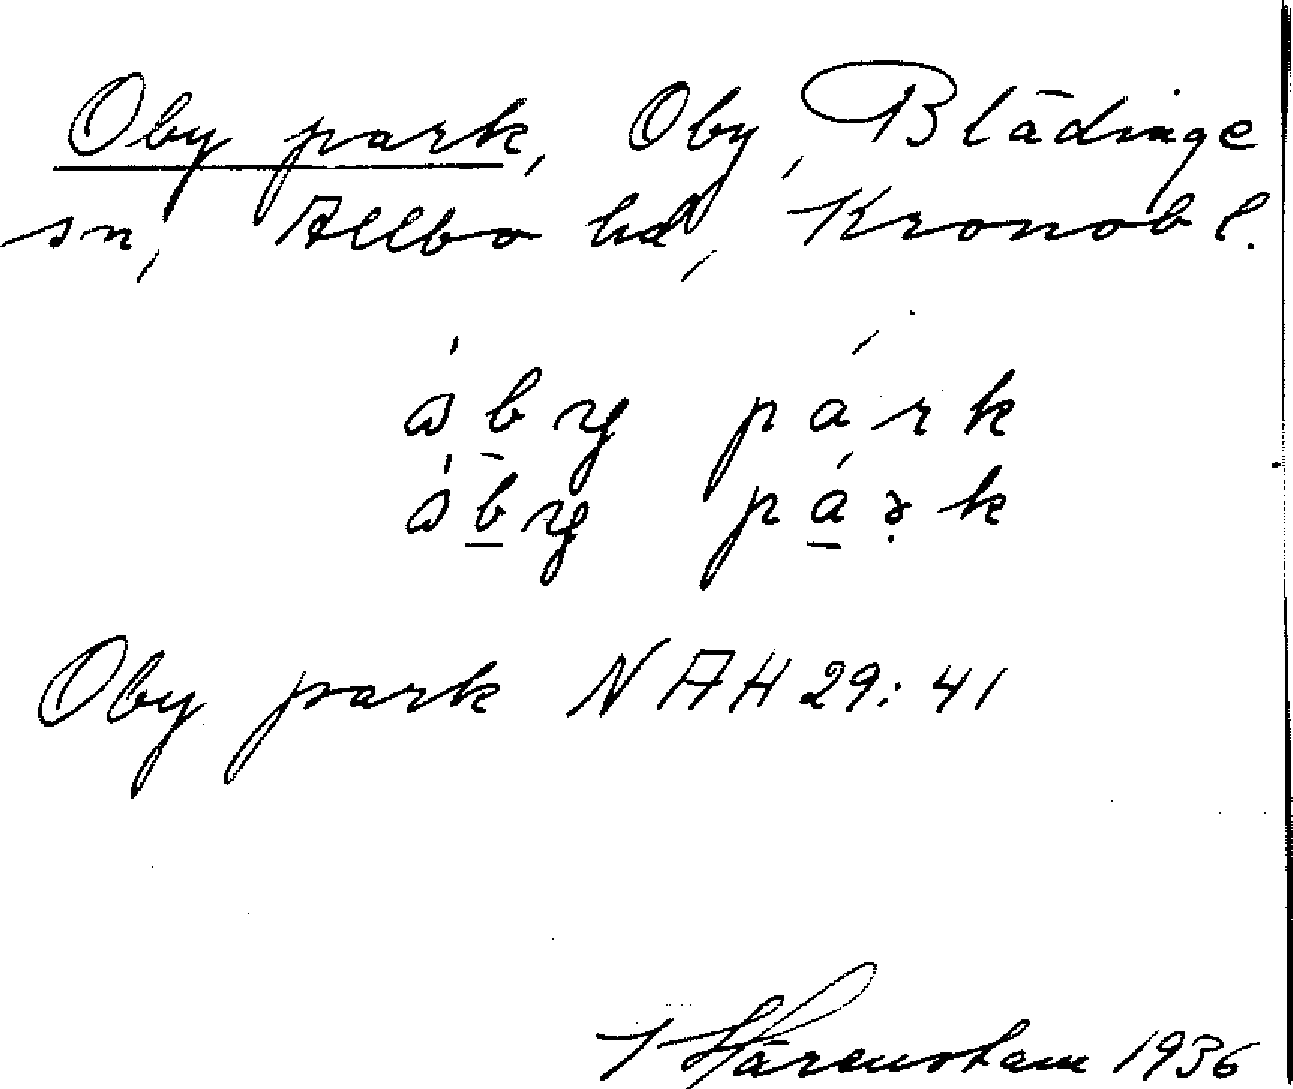 Oby park, Oby, Blädinge
sn, Allbo hd, Kronob l.
åby park
åby park
Oby park NAH 29:41
1936